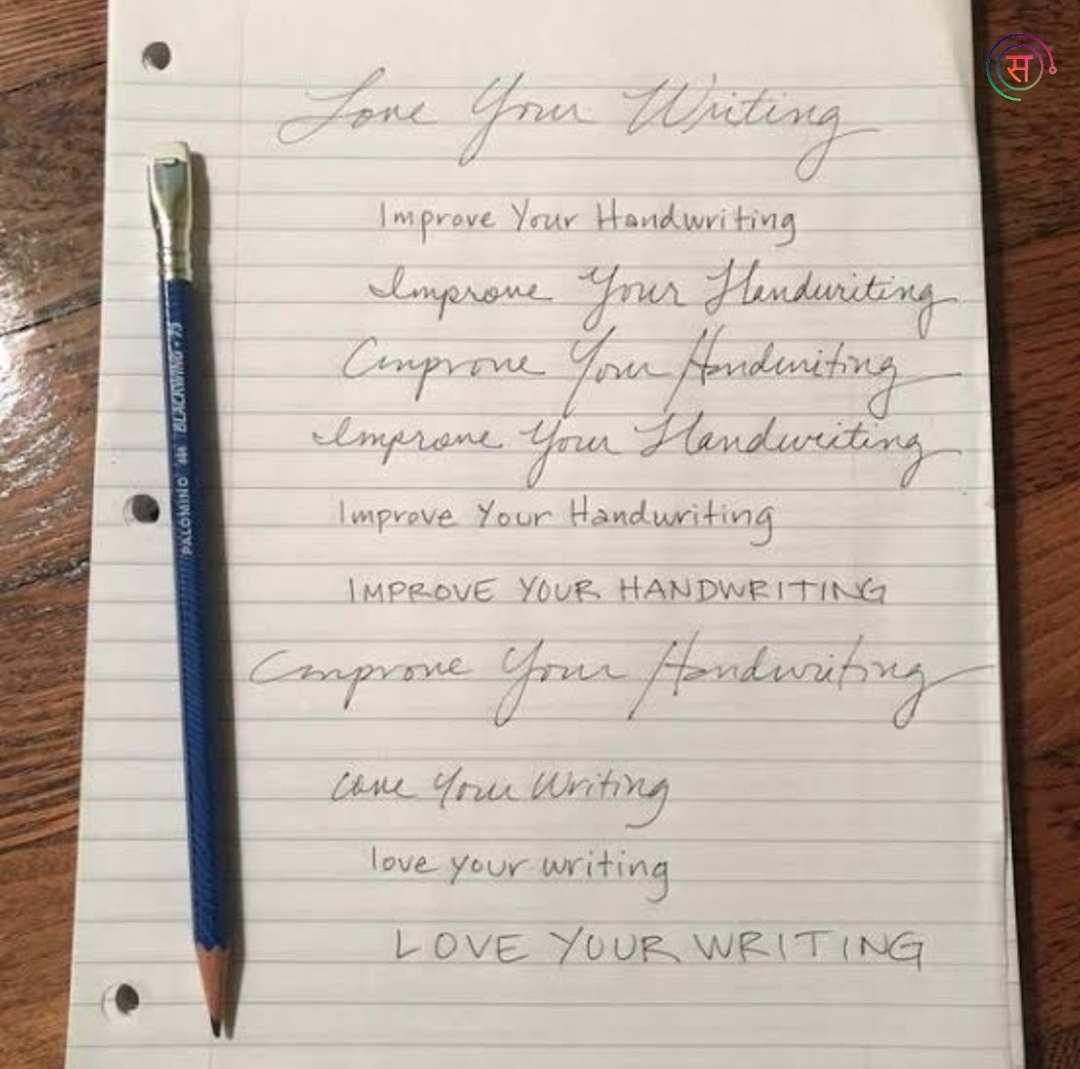 Love Your Writing
Improve Your Handwriting
Improve Your Handwriting
Improve Your Handwriting
Improve Your Handwriting
Improve Your Handwriting
IMPROVE YOUR HANDWRITING
Improve Your Handwriting
Love Your Writing
love your writing
LOVE YOUR WRITING
PALOMINO BLACKWING • 73
स